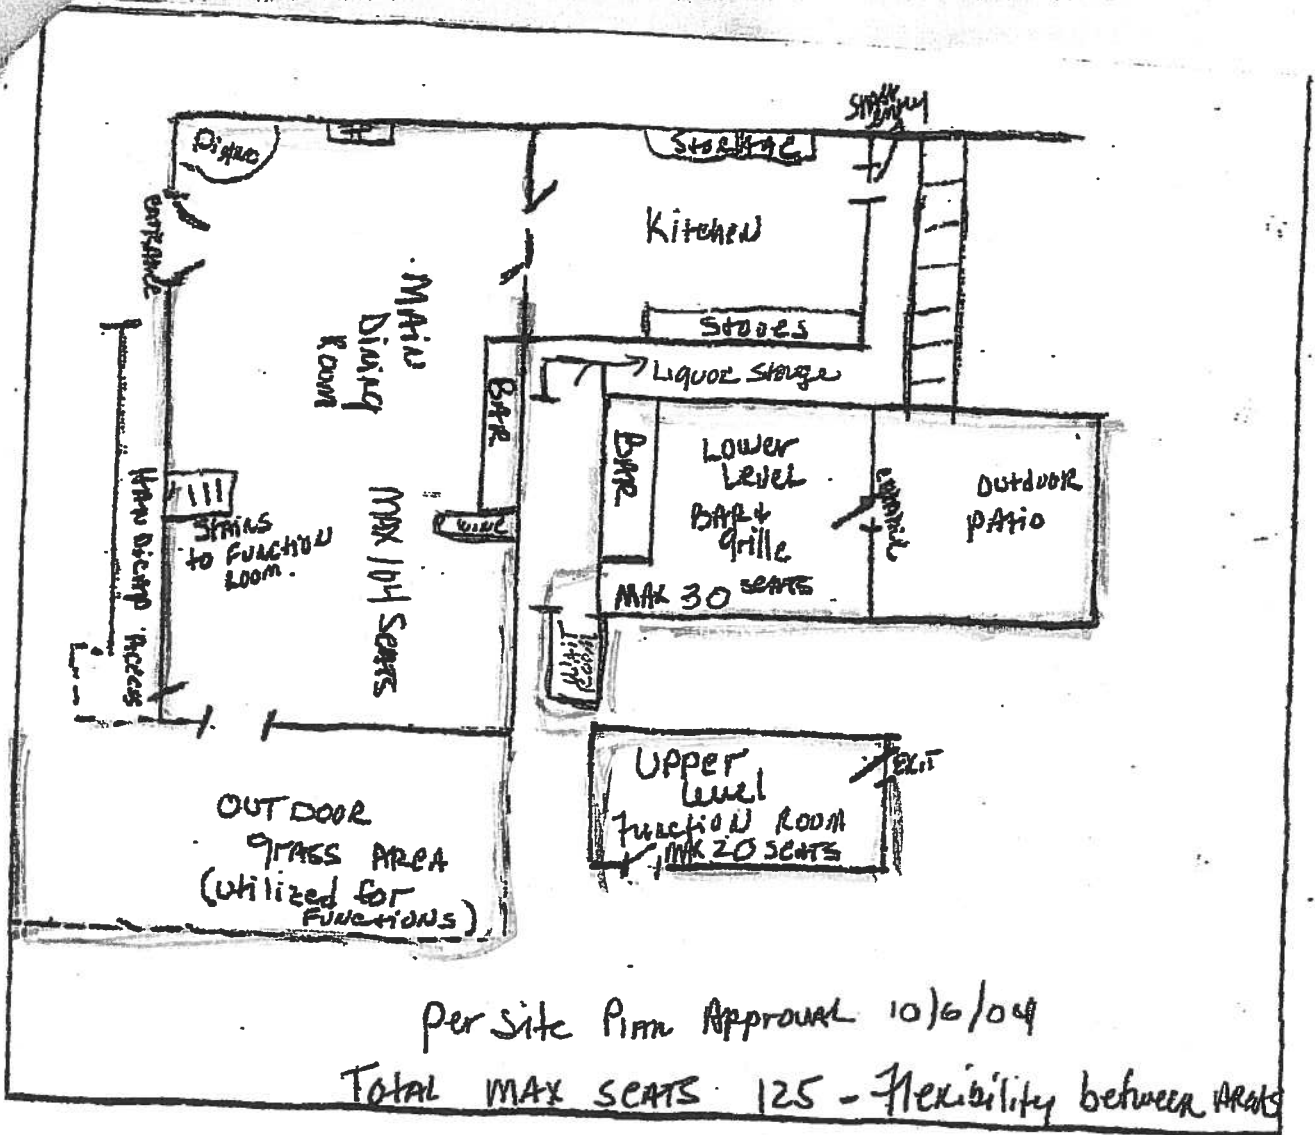 Piano
Storage
entrance
Kitchen
Stoves
Liquor Storage
MAIN
Dining
Room
BAR
BAR
Lower
Level
BAR +
Grille
MAX 30 SEATS
entrance
Outdoor
PAtio
MAX 104 SEATS
WINE
STAIRS
to FUNCTION
ROOM.
HANDICAP ACCESS
WAIT
ROOM
Upper
Level
Function Room
MAX 20 SEATS
EXIT
OUTDOOR
grass AREA
(utilized for
FUNCTIONS)
per Site Plan Approval 10/6/04
TOTAL MAX SEATS 125 - Flexibility between AREAS